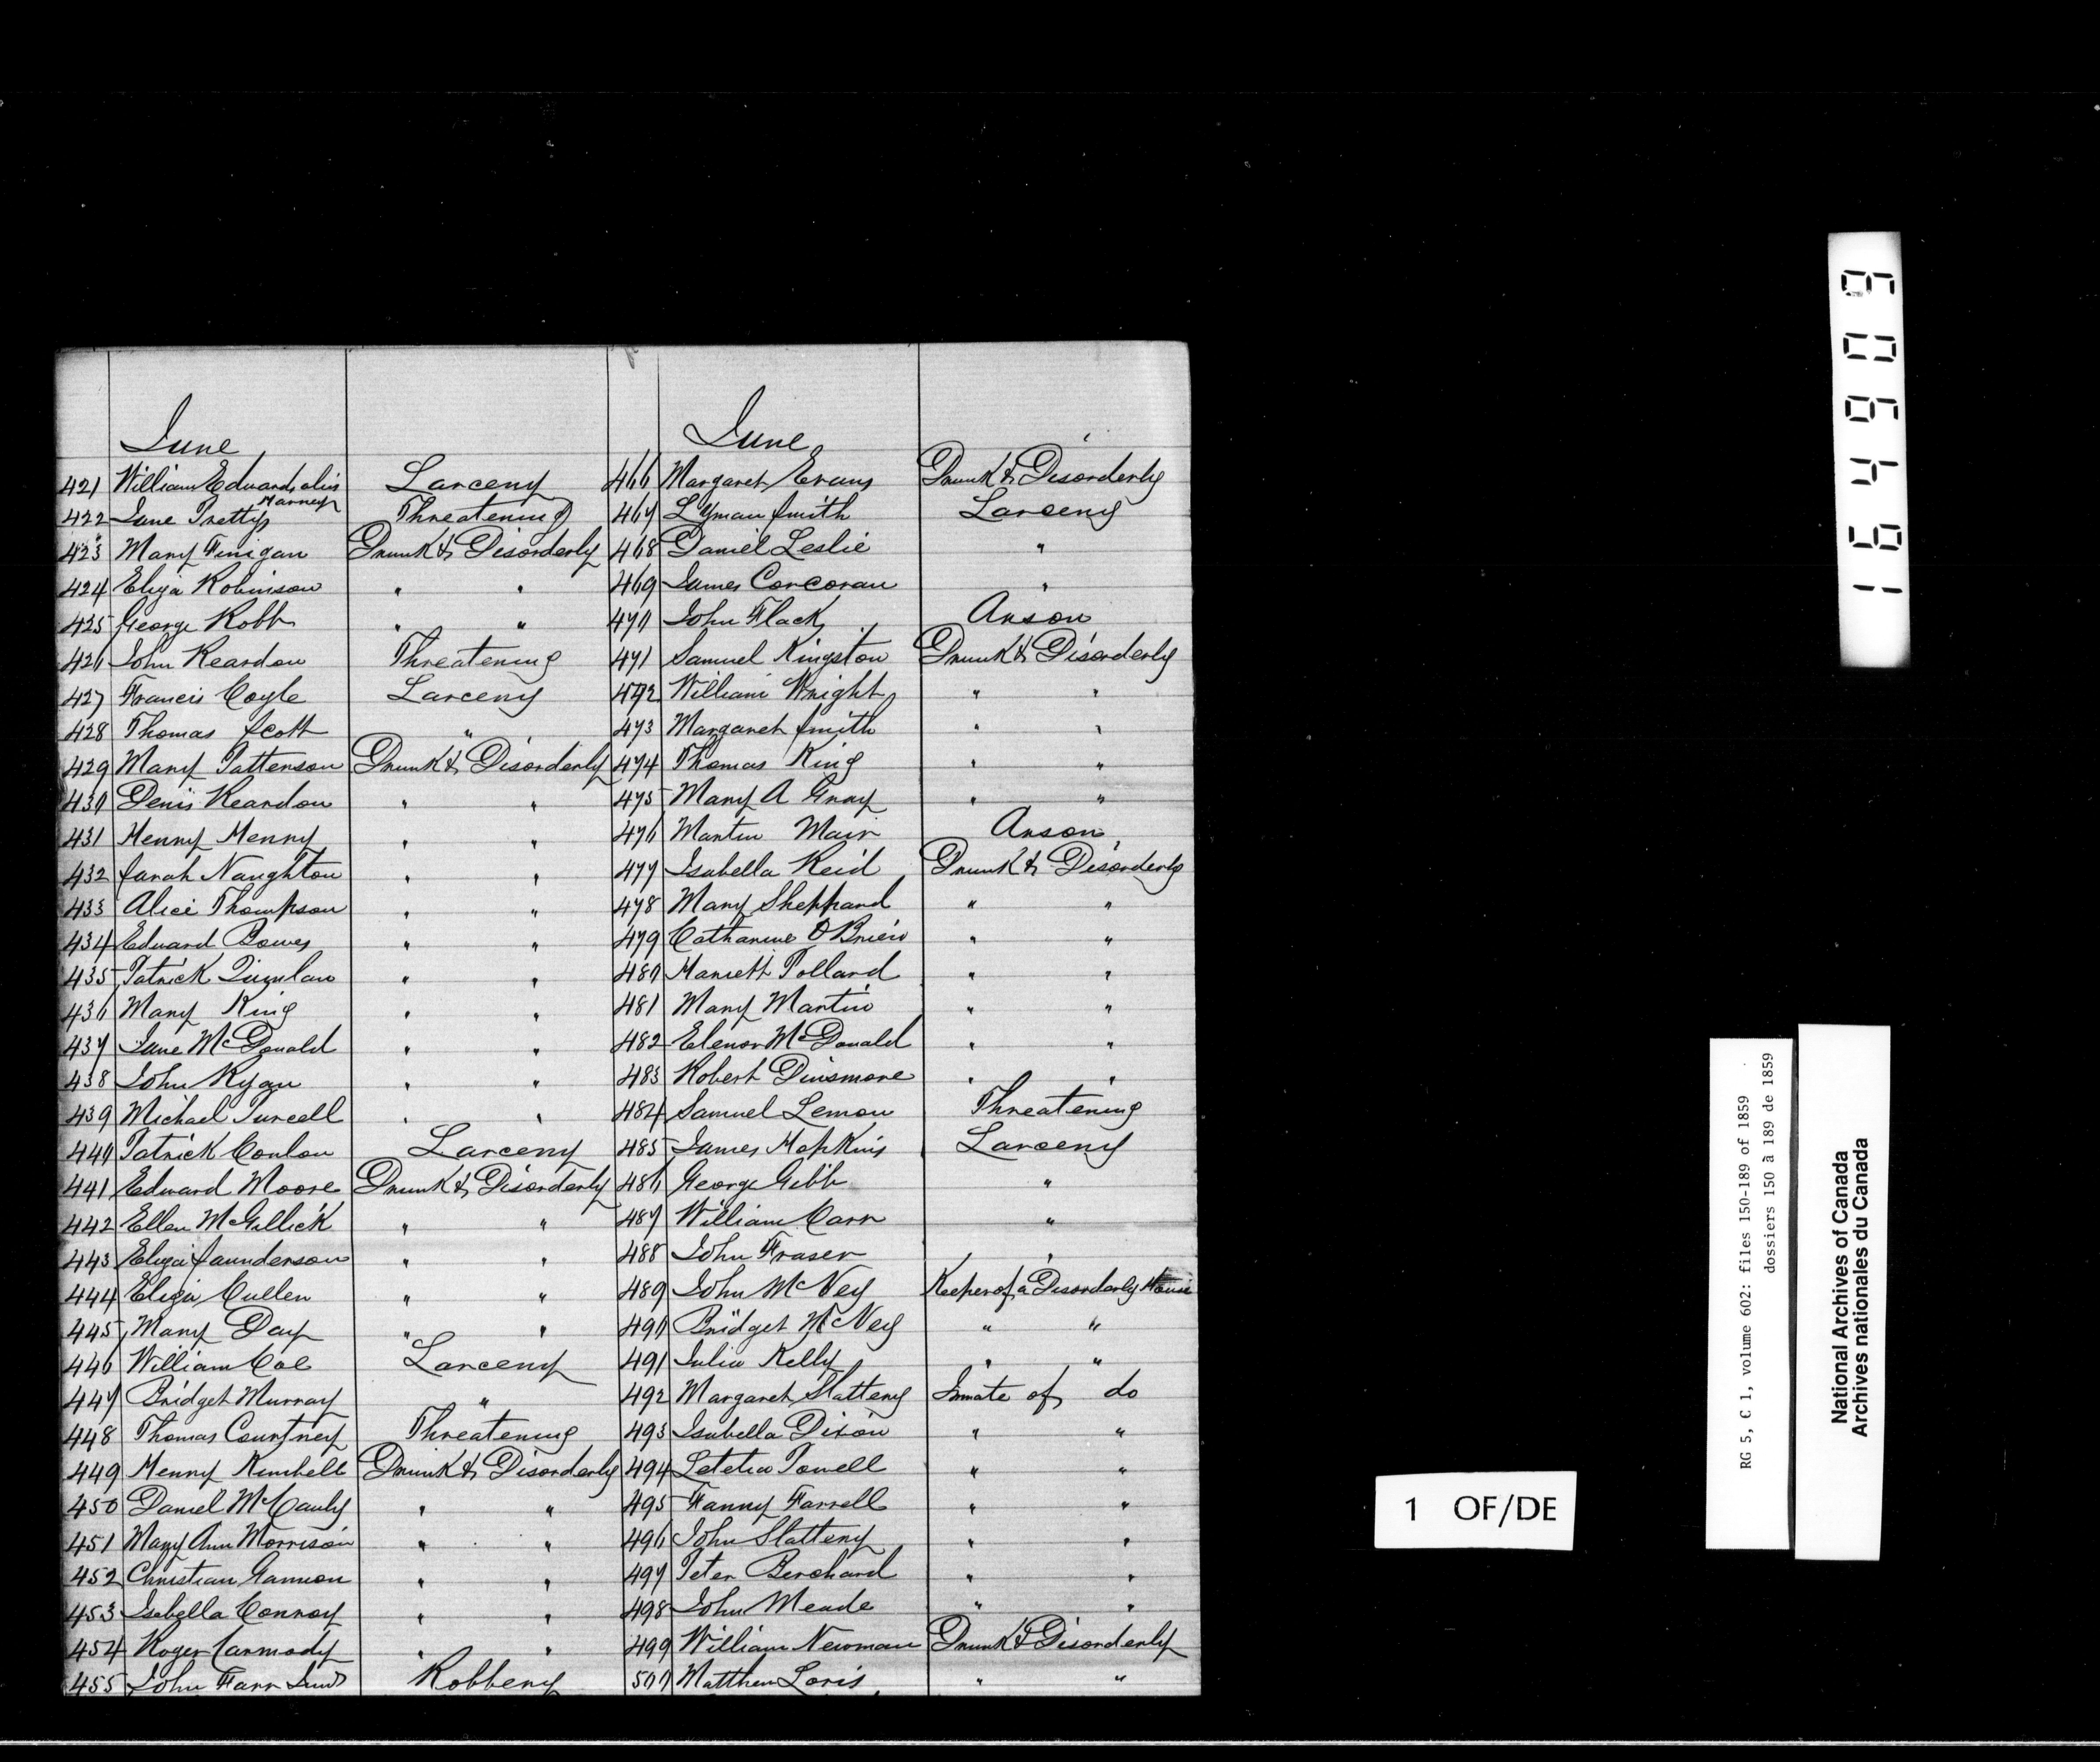 June
421 William Edward, alias Harney Larceny
422 Jane Pretty Threatening
423 Mary Finigan Drunk & Disorderly
424 Eliza Robinson " "
425 George Robb " "
426 John Reardon Threatening
427 Francis Coyle Larceny
428 Thomas Scott "
429 Mary Patterson Drunk & Disorderly
430 Denis Reardon " "
431 Henry Henry " "
432 Sarah Naughton " "
433 Alice Thompson " "
434 Edward Bowes " "
435 Patrick Quinlan " "
436 Mary King " "
437 Jane McDonald " "
438 John Ryan " "
439 Michael Purcell " "
440 Patrick Conlon Larceny
441 Edward Moore Drunk & Disorderly
442 Ellen McGillick " "
443 Eliza Saunderson " "
444 Eliza Cullen " "
445 Mary Day " "
446 William Cole Larceny
447 Bridget Murray "
448 Thomas Courtney Threatening
449 Henry Kimbell Drunk & Disorderly
450 Daniel McCauly " "
451 Mary Ann Morrison " "
452 Christian Gannon " "
453 Isabella Conroy " "
454 Roger Carmody " "
455 John Farr Robbery
June
466 Margaret Evans Drunk & Disorderly
467 Lyman Smith Larceny
468 Daniel Leslie "
469 James Corcoran "
470 John Flack Arson
471 Samuel Kingston Drunk & Disorderly
472 William Wright " "
473 Margaret Smith " "
474 Thomas King " "
475 Mary A Gray " "
476 Martin Mair Arson
477 Isabella Reid Drunk & Disorderly
478 Mary Sheppard " "
479 Catharine O'Brien " "
480 Hariett Pollard " "
481 Mary Martin " "
482 Elenor McDonald " "
483 Robert Dinsmore " "
484 Samuel Lemon Threatening
485 James Hopkins Larceny
486 George Gibb "
487 William Carr "
488 John Fraser "
489 John McVey Keeper of a Disorderly House
490 Bridget McVey " "
491 Julia Kelly " "
492 Margaret Slattery Inmate of do
493 Isabella Dixon " "
494 Letetia Powell " "
495 Fanny Farrell " "
496 John Slattery " "
497 Peter Berchard " "
498 John Meade " "
499 William Newman Drunk & Disorderly
500 Matthew Loris " "
1 OF/DE
RG 5, C 1, volume 602: files 150-189 of 1859
dossiers 150 à 189 de 1859
National Archives of Canada
Archives nationales du Canada